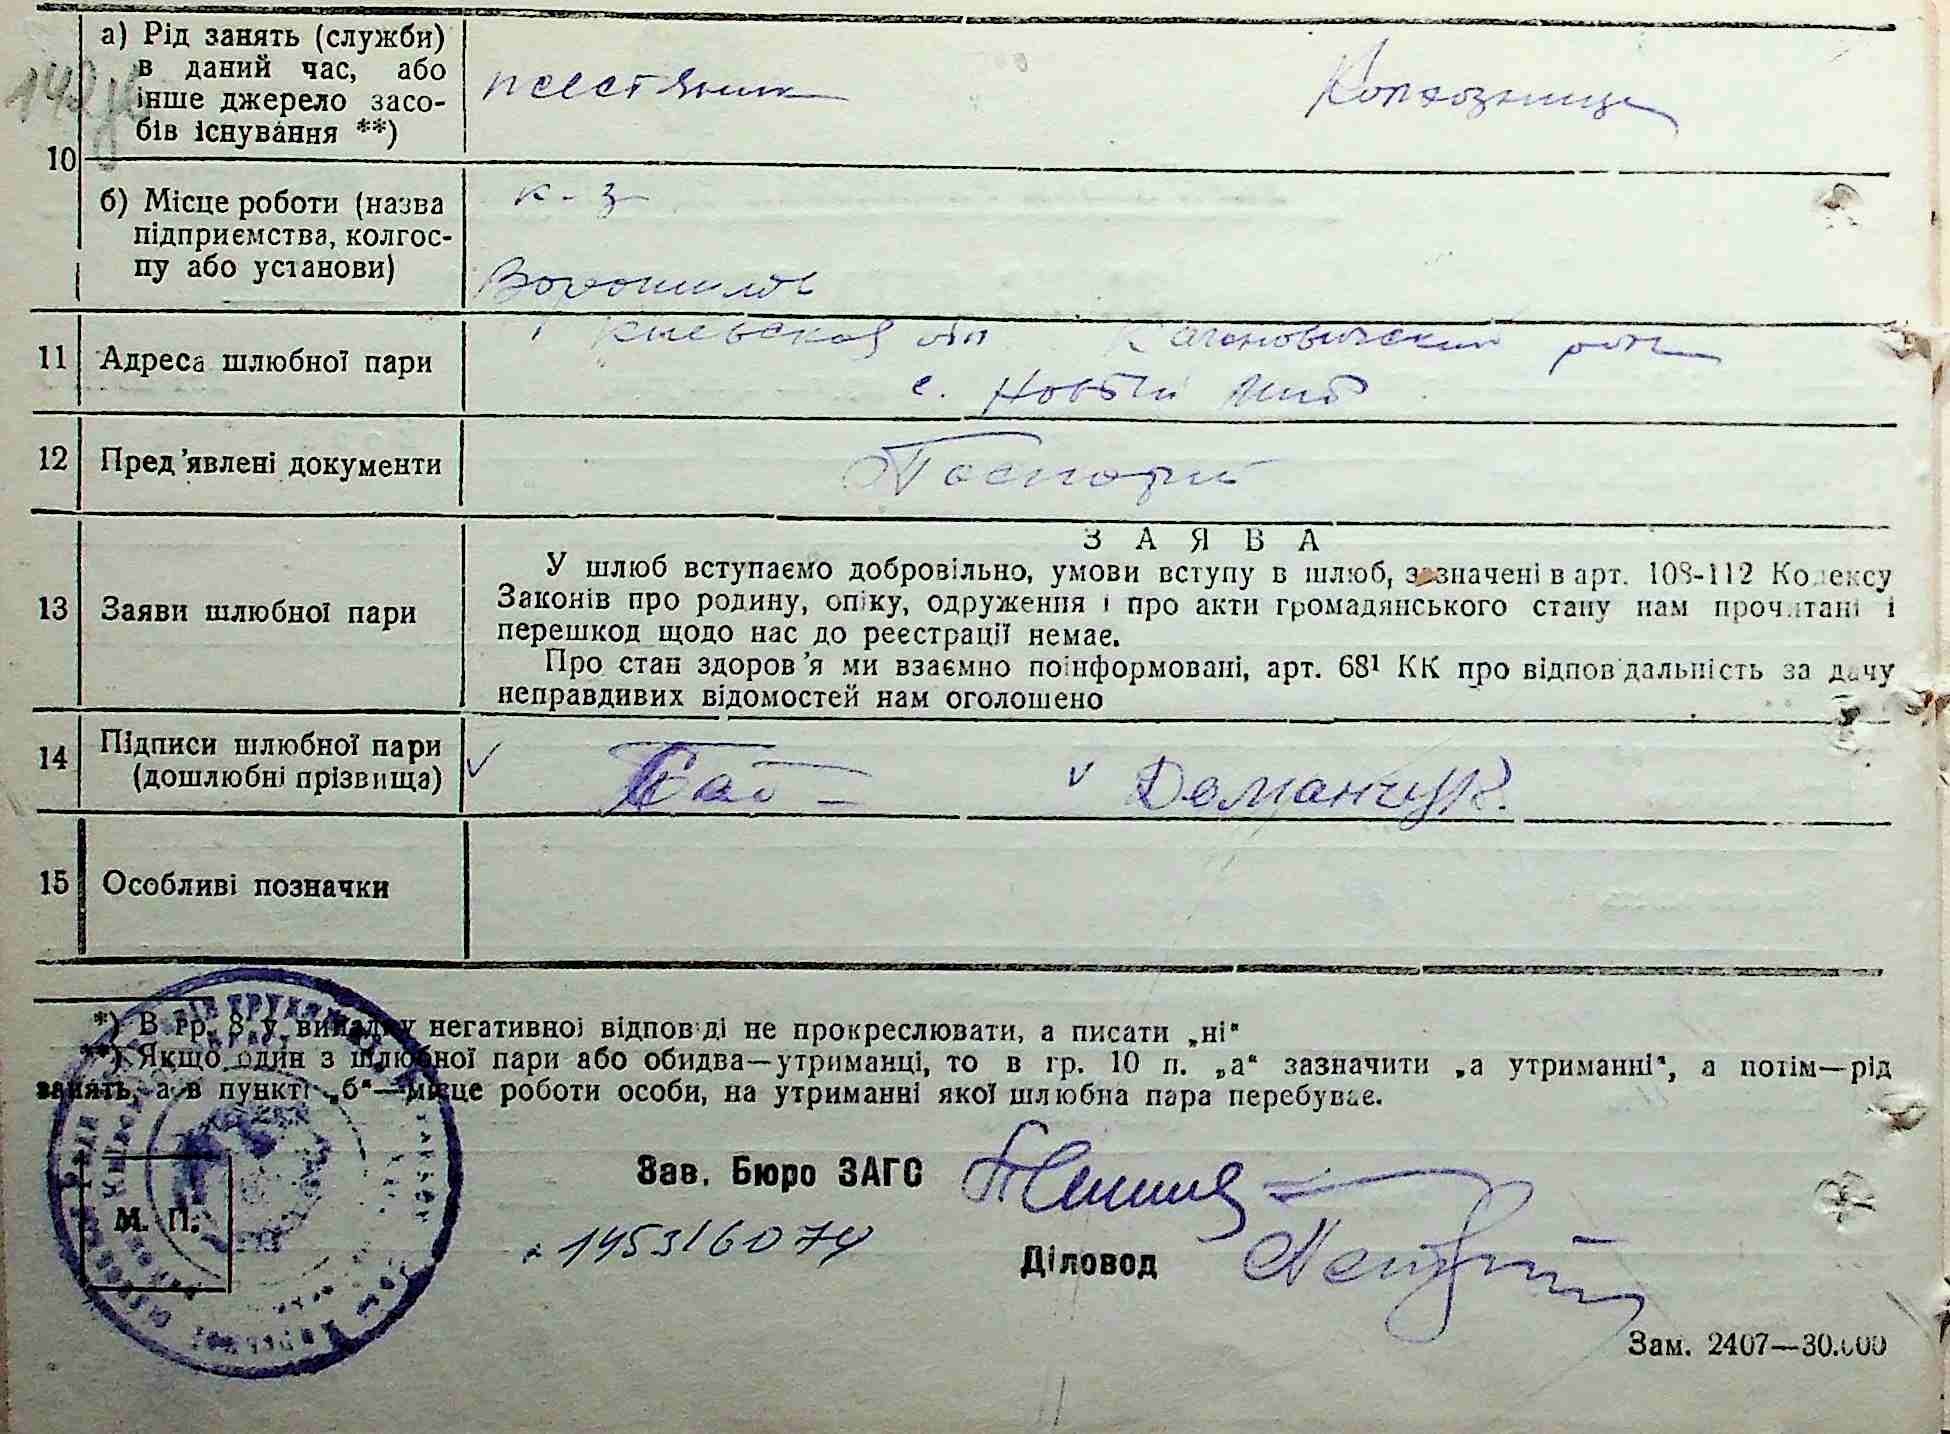 10
а) Рід занять (служби)
в даний час, або
інше джерело засо-
бів існування **)
Колхозница
б) Місце роботи (назва
підприємства, колгос-
пу або установи)
к-з
Ворошилов
11 Адреса шлюбної пари
Киевская обл Кагановичский
с. Новый Мир
12 Пред'явлені документи
Паспорти
З А Я В А
13 Заяви шлюбної пари
У шлюб вступаємо добровільно, умови вступу в шлюб, зазначені в арт. 108-112 Кодексу
Законів про родину, опіку, одруження і про акти громадянського стану нам прочитані і
перешкод щодо нас до реєстрації немає.
Про стан здоров'я ми взаємно поінформовані, арт. 68¹ КК про відповідальність за дачу
неправдивих відомостей нам оголошено
14 Підписи шлюбної пари
(дошлюбні прізвища)
Доманчук.
15 Особливі позначки
*) В гр. 8 у випадку негативної відповіді не прокреслювати, а писати „ні"
**) Якщо один з шлюбної пари або обидва—утриманці, то в гр. 10 п. „а" зазначити „а утриманні", а потім—рід
занять, а в пункті „б"—місце роботи особи, на утриманні якої шлюбна пара перебуває.
Зав. Бюро ЗАГС
М. П.
Діловод
Зам. 2407—30.000